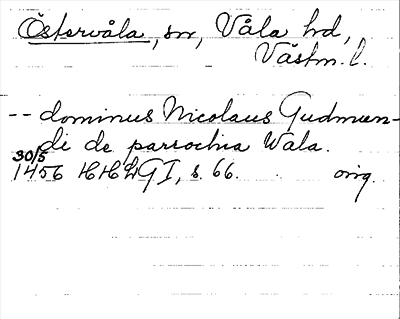 Östervåla, sn, Våla hd,
Västm. l.
-- dominus Nicolaus Gudmun-
di de parrochia Wala.
30/5
1456 HH G I, s. 66. orig.